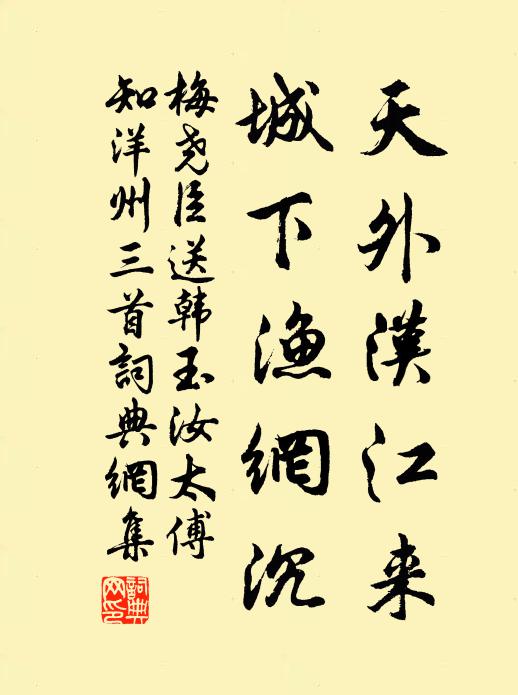 天外漢江来
城下漁網沉
梅尧臣送韩玉汝太傅
知洋州三首詞典網集
詞典